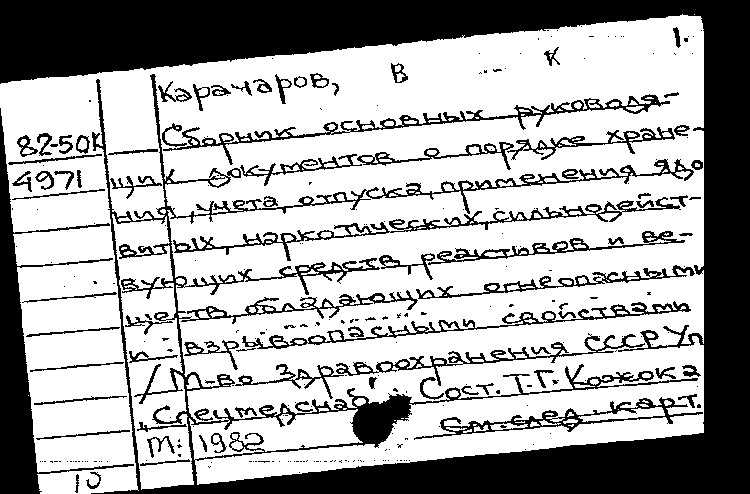 1.
Карачаров, В К
82-50К Сборник основных руководя-
4971 щих документов о порядке хране-
ния, учета, отпуска, применения ядо
витых, наркотических, сильнодейст-
вующих средств, реактивов и ве-
ществ, обладающих огнеопасными
и взрывоопасными свойствами
/ М-во здравоохранения СССР Уп
"Спецмедснаб"; Сост. Т.Г. Кожока
М: 1982 См. след. карт.
10